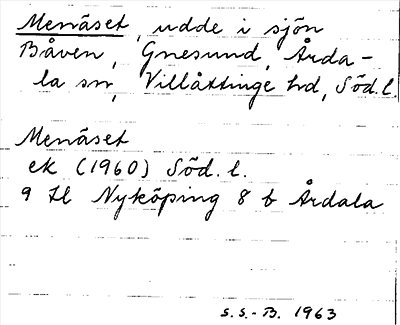 Menäset, udde i sjön
Båven, Gnesund, Årda-
la sn, Villåttinge hd, Söd.l.
Menäset
ek (1960) Söd. l.
9 H Nyköping 8 b Årdala
S.S.-B. 1963